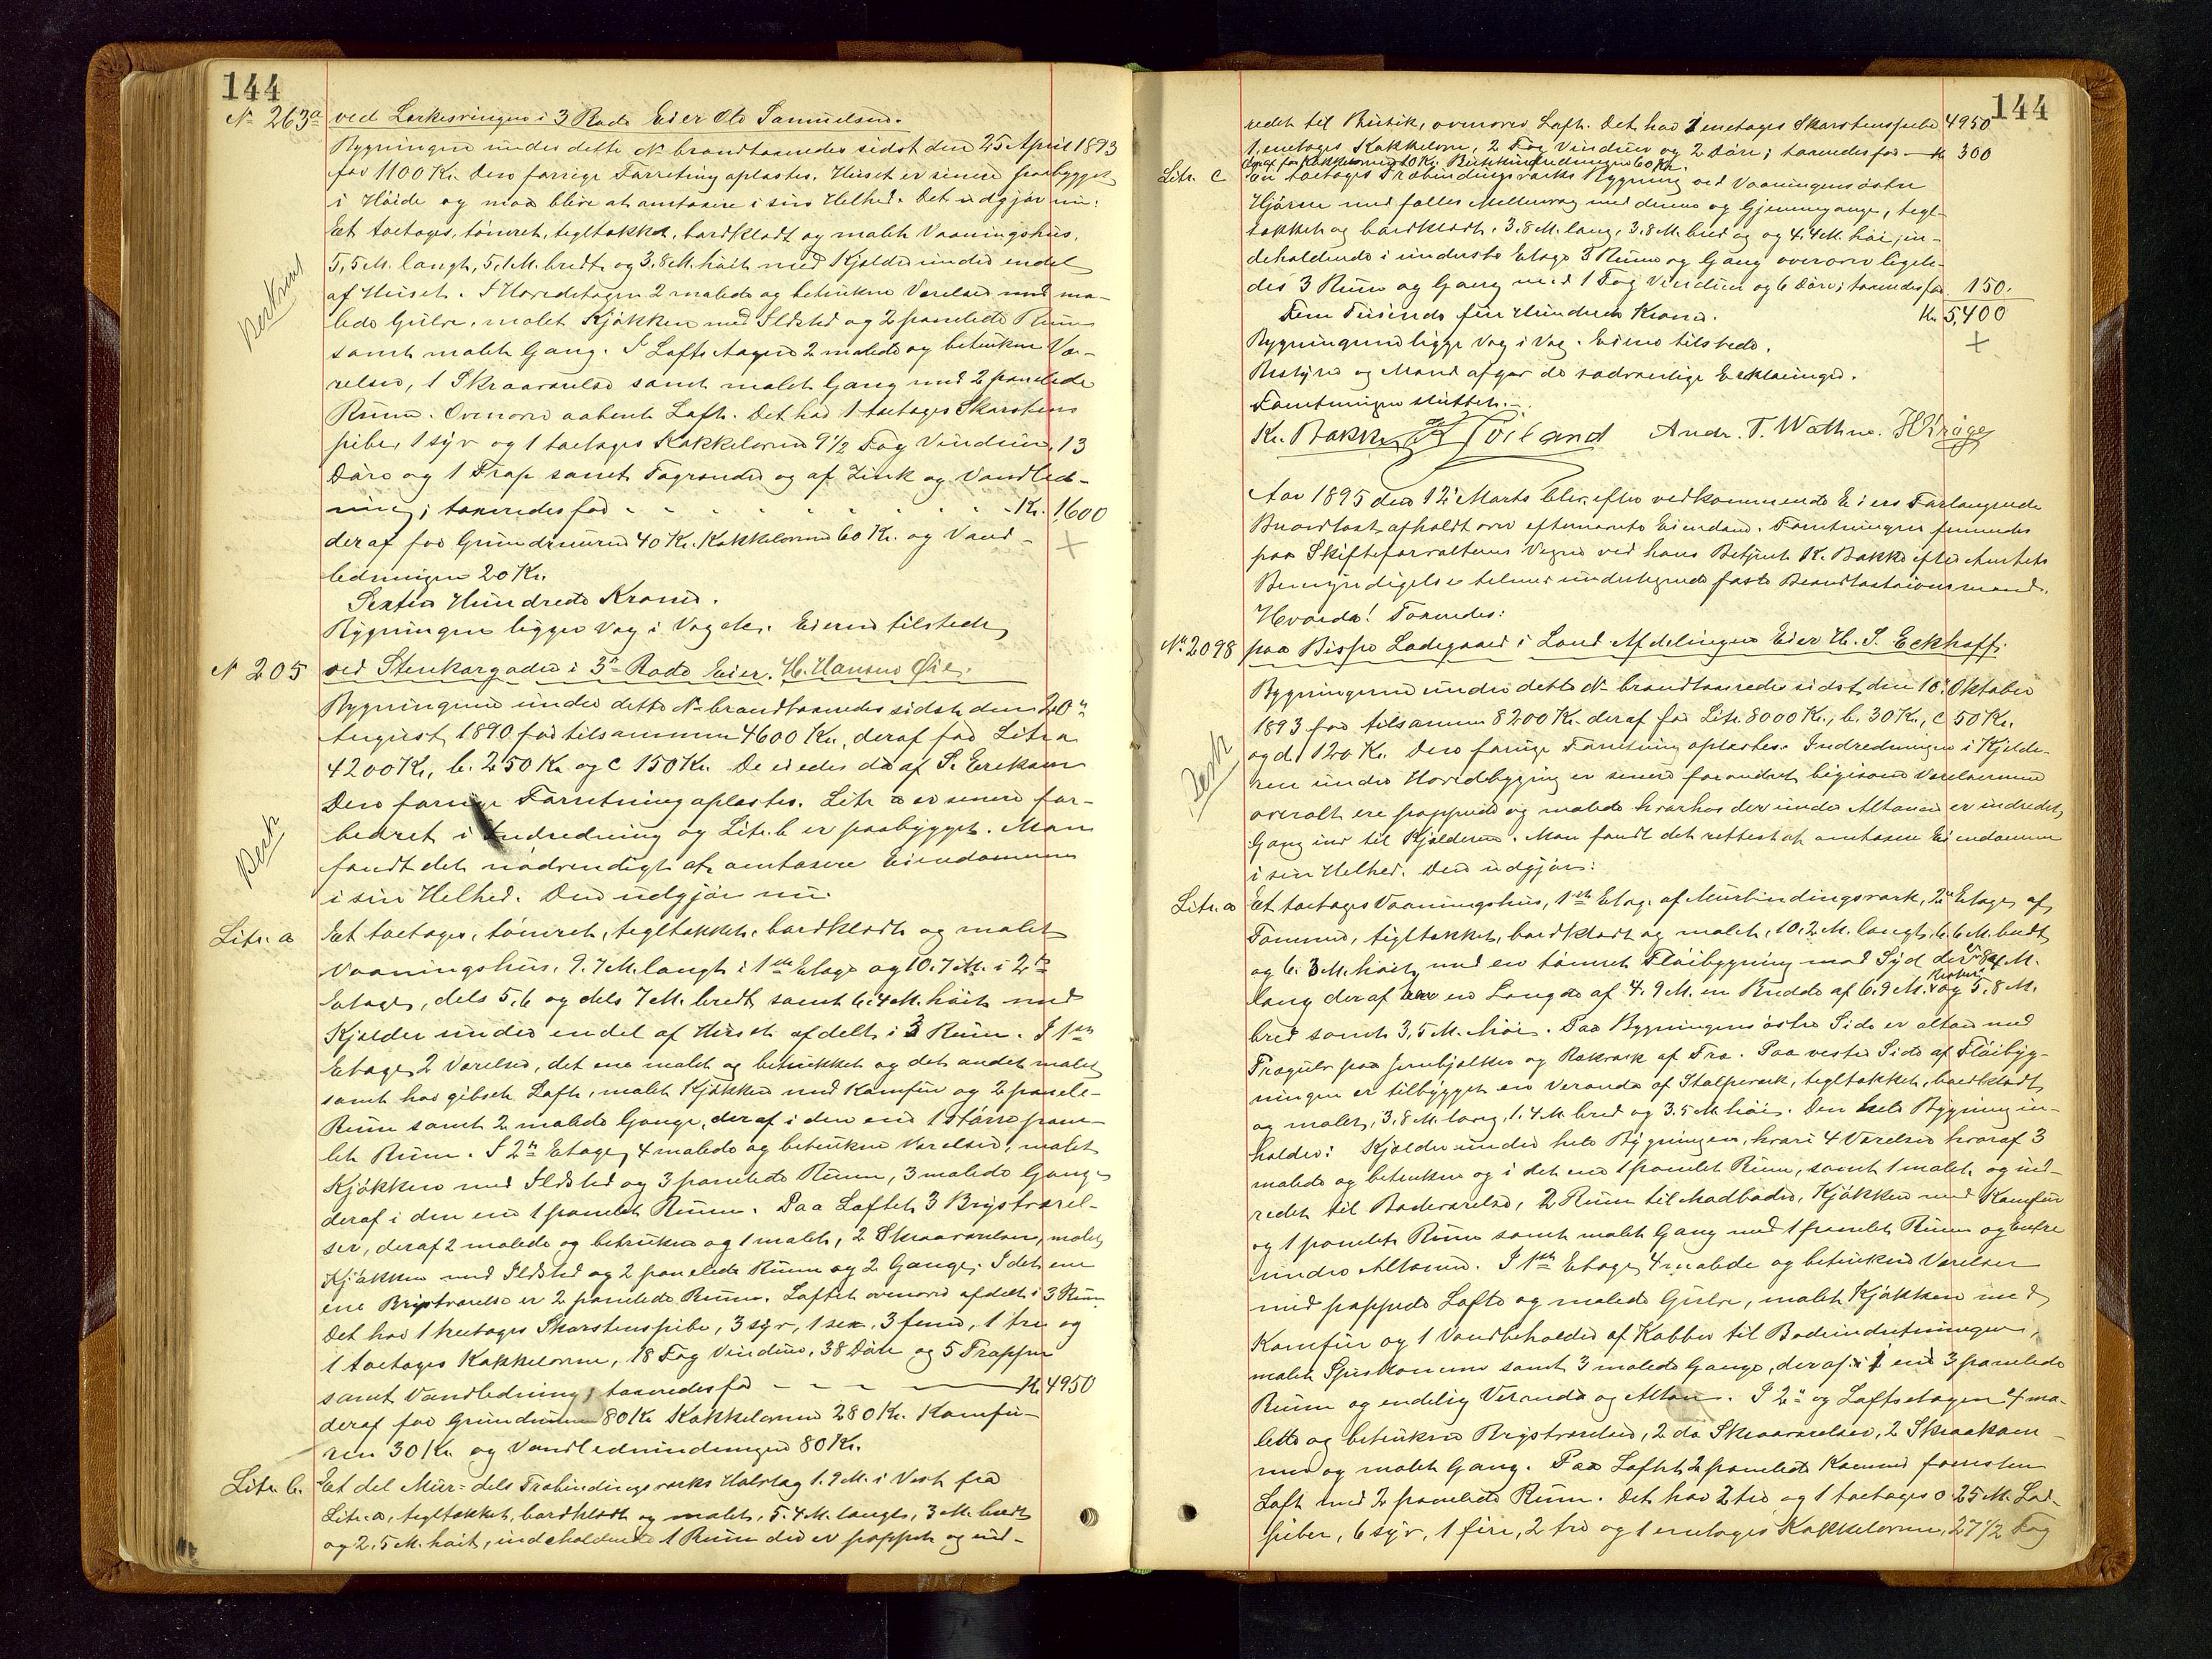 144
No 263a ved Lærkesvingen i 3 Rode Eier Ole Samuelsen.
Bygningen under dette No brandtaxeredes sidst den 25 April 1893
for 1100 Kr. Den forrige Forretning oplæstes. Huset er senere paabygget
i Høide og maa blive at omtaxere i sin Helhed. Det udgjør nu:
Et toetages, tømret, tegltækket, bordklædt og malet Vaaningshus,
5,5 M. langt, 5,1 M. bredt og 3,8 M. høit med Kjelder under endel
af Huset. I Hovedetagen 2 malede og betrukne Værelser med ma-
lede Gulve, malet Kjøkken med Ildsted og 2 panelede Rum
samt malet Gang. I Loftsetagen 2 malede og betrukne Væ-
relser, 1 Skraaværelse samt malet Gang med 2 panelede
Rum. Ovenover aabent Loft. Det har 1 toetages Skorstens
pibe, 1 syv og 1 toetages Kakkelovne 9 1/2 Fag Vinduer, 13
Døre og 1 Trap samt Tagrender og af Zink og Vandled-
ning; taxeredes for - - - - - - - - - Kr. 1,600
deraf for Grundmuren 40 Kr. Kakkelovne 60 Kr. og Vand-
ledningen 20 Kr.
Sexten Hundrede Kroner.
Bygningen ligger Væg i Væg etc. Eieren tilstede
Bestyrerens
No 205 ved Stenkargaden i 3die Rode Eier. H. Hansen Øie.
Bygningerne under dette No brandtaxeredes sidst den 20de
August 1890 for tilsammen 4600 Kr., deraf for Litr a
4200 Kr, b. 250 Kr og c 150 Kr. De eiedes da af S. Eriksen
Den forrige Forretning oplæstes. Litr a er senere for-
bedret i Indredning og Litr. b er paabygget. Man
fandt det nødvendigt at omtaxere Eiendommen
i sin Helhed. Den udgjør nu:
Litr. a Et toetages, tømret, tegltækket, bordklædt og malet
Vaaningshus, 9.7 M. langt i 1ste Etage og 10.7 M. i 2den
Etage, dels 5,6 og dels 7 M. bredt samt 6.4 M. høit med
Kjelder under endel af Huset afdelt i 3 Rum. I 1ste
Etage 2 Værelser, det ene malet og betrukket og det andet malet
samt har gibset Loft, malet Kjøkken med Komfur og 2 panele-
Rum samt 2 malede Gange, deraf i den ene 1 større pane-
let Rum. I 2den Etage, 4 malede og betrukne Værelser, malet
Kjøkken med Ildsted og 3 panelede Rum, 3 malede Gange
deraf i den ene 1 panelet Rum. Paa Loftet 3 Brystværel-
ser, deraf 2 malede og betrukne og 1 malet, 2 Skraaværelser, malet
Kjøkken med Ildsted og 2 panelede Rum og 2 Gange. I det ene
ene Brystværelse er 2 panelede Rum. Loftet ovenover afdelt i 3 Rum
Det har 1 treetages Skorstenspibe, 3 syv, 1 sex, 3 fem, 1 tre og
1 toetages Kakkelovne, 18 Fag Vinduer, 38 Døre og 5 Trapper
samt Vandledning; taxeredes for - - - Kr 4950
deraf for Grundmuren 80 Kr Kakkelovne 280 Kr. Komfu-
ren 30 Kr. og Vandledninduingen 80 Kr.
Litr. b. Et del Mur- dels Træbindingsværks Halvtag 1.9 M. i Vest fra
Litr. a, tegltækket, bordklædt og malet, 5.4 M. langt, 3 M. bredt
og 2.5 M. høit, indeholdende 1 Rum der er pappet og ind-
144
redet til Butik, ovenover Loft. Det har 1 enetages Skorstenspibe 4950
1 enetages Kakkelovn, 2 Fag Vinduer og 2 Døre; taxeredes for - Kr 300
deraf for Kakkelovnen 10 Kr. Butikindredningen 60 Kr.
Litr. c En toetages Træbindingsværks Bygning ved Vaaningens østre
Hjørne med fælles Mellemvæg med denne og Gjennemgange, tegl-
tækket og bordklædt, 3.8 M. lang, 3.8 M. bred og og 4.4 M. høi, in-
deholdende i underste Etage 3 Rum og Gang ovenover ligele-
des 3 Rum og Gang med 1 Fag Vinduer og 6 Døre; taxeredes for 150.
Fem Tusinde fire Hundrede Kroner. Kr 5,400
Bygningerne ligge Væg i Væg. Eieren tilstede.
Bestyrer og Mænd afgav de sædvanlige Erklæringer.
Forretningen sluttet.
Kr. Bakke Toiland Andr. T. Wathne. H Kröger
Aar 1895 den 12te Marts blev efter vedkommende Eiers Forlangende
Brandtaxt afholdt over efternævnte Eiendom. Forretningen fremmedes
paa Skifteforvalterens Vegne ved hans Betjent K. Bakke efter Amtets
Bemyndigelse telmed undertegnede faste Brandtaxtationsmænd.
Hvorda! Toxeredes:
No. 2098 paa Bispe Ladegaard i Land Afdelingen Eier H. S. Eckhoff.
Bygningerne under dette No brandtaxeredes sidst den 10de Oktober
1893 for tilsammen 8200 Kr. deraf for Litr. 8000 Kr., b. 30 Kr., c 50 Kr.
og d. 120 Kr. Den forrige Forretning oplæstes. Indredningen i Kjelde-
ren under Hovedbygning er senere forandret ligesom Værelserne
overalt ere pappede og malede hvorhos der under Altanen er indredet
Gang ind til Kjelderen. Man fandt det rettest at omtaxere Eiendommen
i sin Helhed. Den udgjør:
Litr. a Et toetages Vaaningshus, 1ste Etage af Murbindingsværk, 2den Etage af
Tømmer, tegltækket, bordklædt og malet, 10.2 M. langt, 6.6 M. bredt
og 6.3 M. høit, med en tømret Fløibygning mod Syd der er 8.4 M.
lang deraf har en Længde af 4.9 M. en Bredde af 6.9 M. og Resten 5.8 M.
bred samt 3,5 M. høi. Paa Bygningens østre Side er altan med
Trægulv paa Jernbjelker og Rækværk af Træ. Paa vestre Side af Fløibyg-
ningen er tilbygget en Veranda af Stolpeværk, tegltækket, bordklædt
og malet, 3,8 M. lang, 1.4 M. bred og 3.5 M. høi. Den hele Bygning in-
holder: Kjelder under hele Bygningen, hvori 4 Værelser hvoraf 3
malede og betrukne og i det ene 1 panelet Rum, samt 1 malet og ind-
redet til Badeværelse, 2 Rum til Madboder, Kjøkken med Komfur
og 1 panelet Rum samt malet Gang med 1 panelet Rum og Entre
under Altanen. I 1ste Etage 4 malede og betrukne Værelser
med pappede Lofte og malede Gulve, malet Kjøkken med
Komfur og 1 Vandbeholder af Kobber til Badeindretningen,
malet Spiskammer samt 3 malede Gange, deraf i 1 ene 3 panelede
Rum og endelig Veranda og Altan. I 2den og Loftsetagen 4 ma-
lette og betrukne Brystværelser, 2 do Skraaværelser, 2 Skraakam-
mer og malet Gang. Paa Loftet 2 panelede Kammer forresten
Loft med 2 panelede Rum. Det har 2 tre og 1 toetages 0.25 M. Lad-
piber, 6 syv, 1 fire, 2 tre og 1 enetages Kakkelovne, 27 1/2 Fag